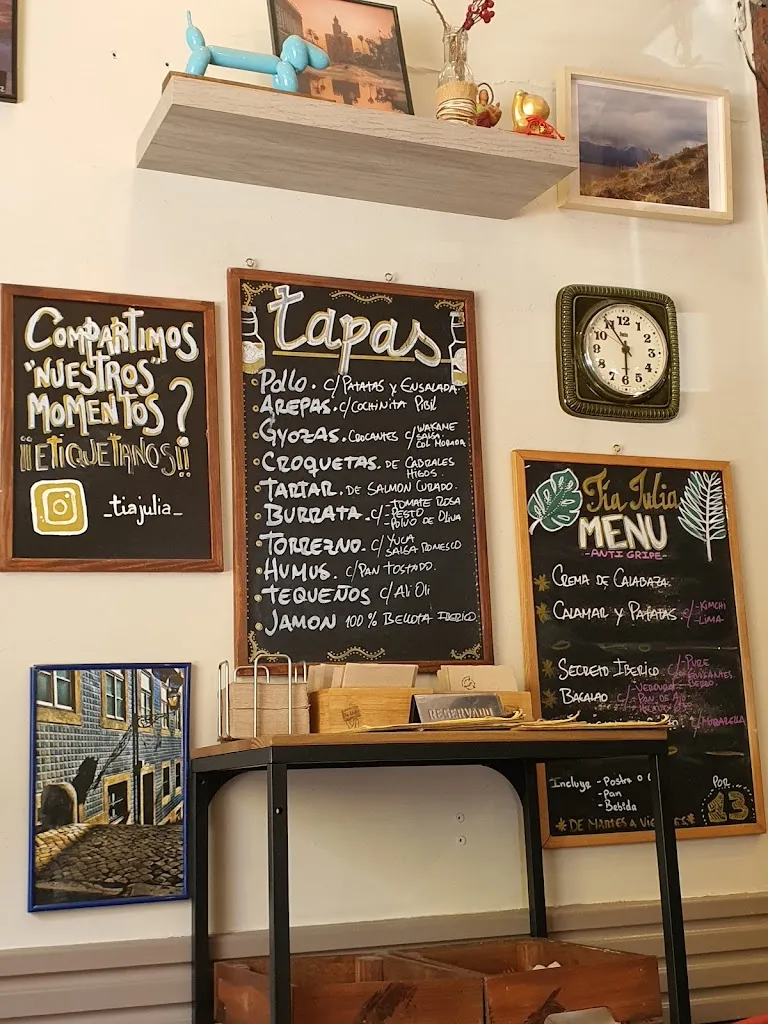 COMPARTIMOS
"NUESTROS"
MOMENTOS?
¡¡ETIQUETANOS!!
_tiajulia_
tapas
POLLO. C/PATATAS Y ENSALADA
AREPAS. C/COCHINITA PIBIL
GYOZAS. CROCANTES C/ WAKAME
SALSA
COL MORADA
CROQUETAS. DE CABRALES
HIGOS.
TARTAR. DE SALMON CURADO.
BURRATA. C/ -TOMATE ROSA
-PESTO
-POLVO DE OLIVA
TORREZNO. C/ YUCA
SALSA ROMESCO
HUMUS. C/PAN TOSTADO.
TEQUEÑOS C/Ali Oli
JAMON 100% BELLOTA IBERICO
12 1 2 3 4 5 6 7 8 9 10 11
Tia Julia
MENU
-ANTI GRIPE-
CREMA DE CALABAZA.
CALAMAR Y PATATAS C/ -KIMCHI
-LIMA
SECRETO IBERICO C/ -PURE
BACALAO C/ -VERDURA
Incluye -Postre o C
-Pan
-Bebida
POR
13
*DE MARTES A VIERNES*
RESERVADO